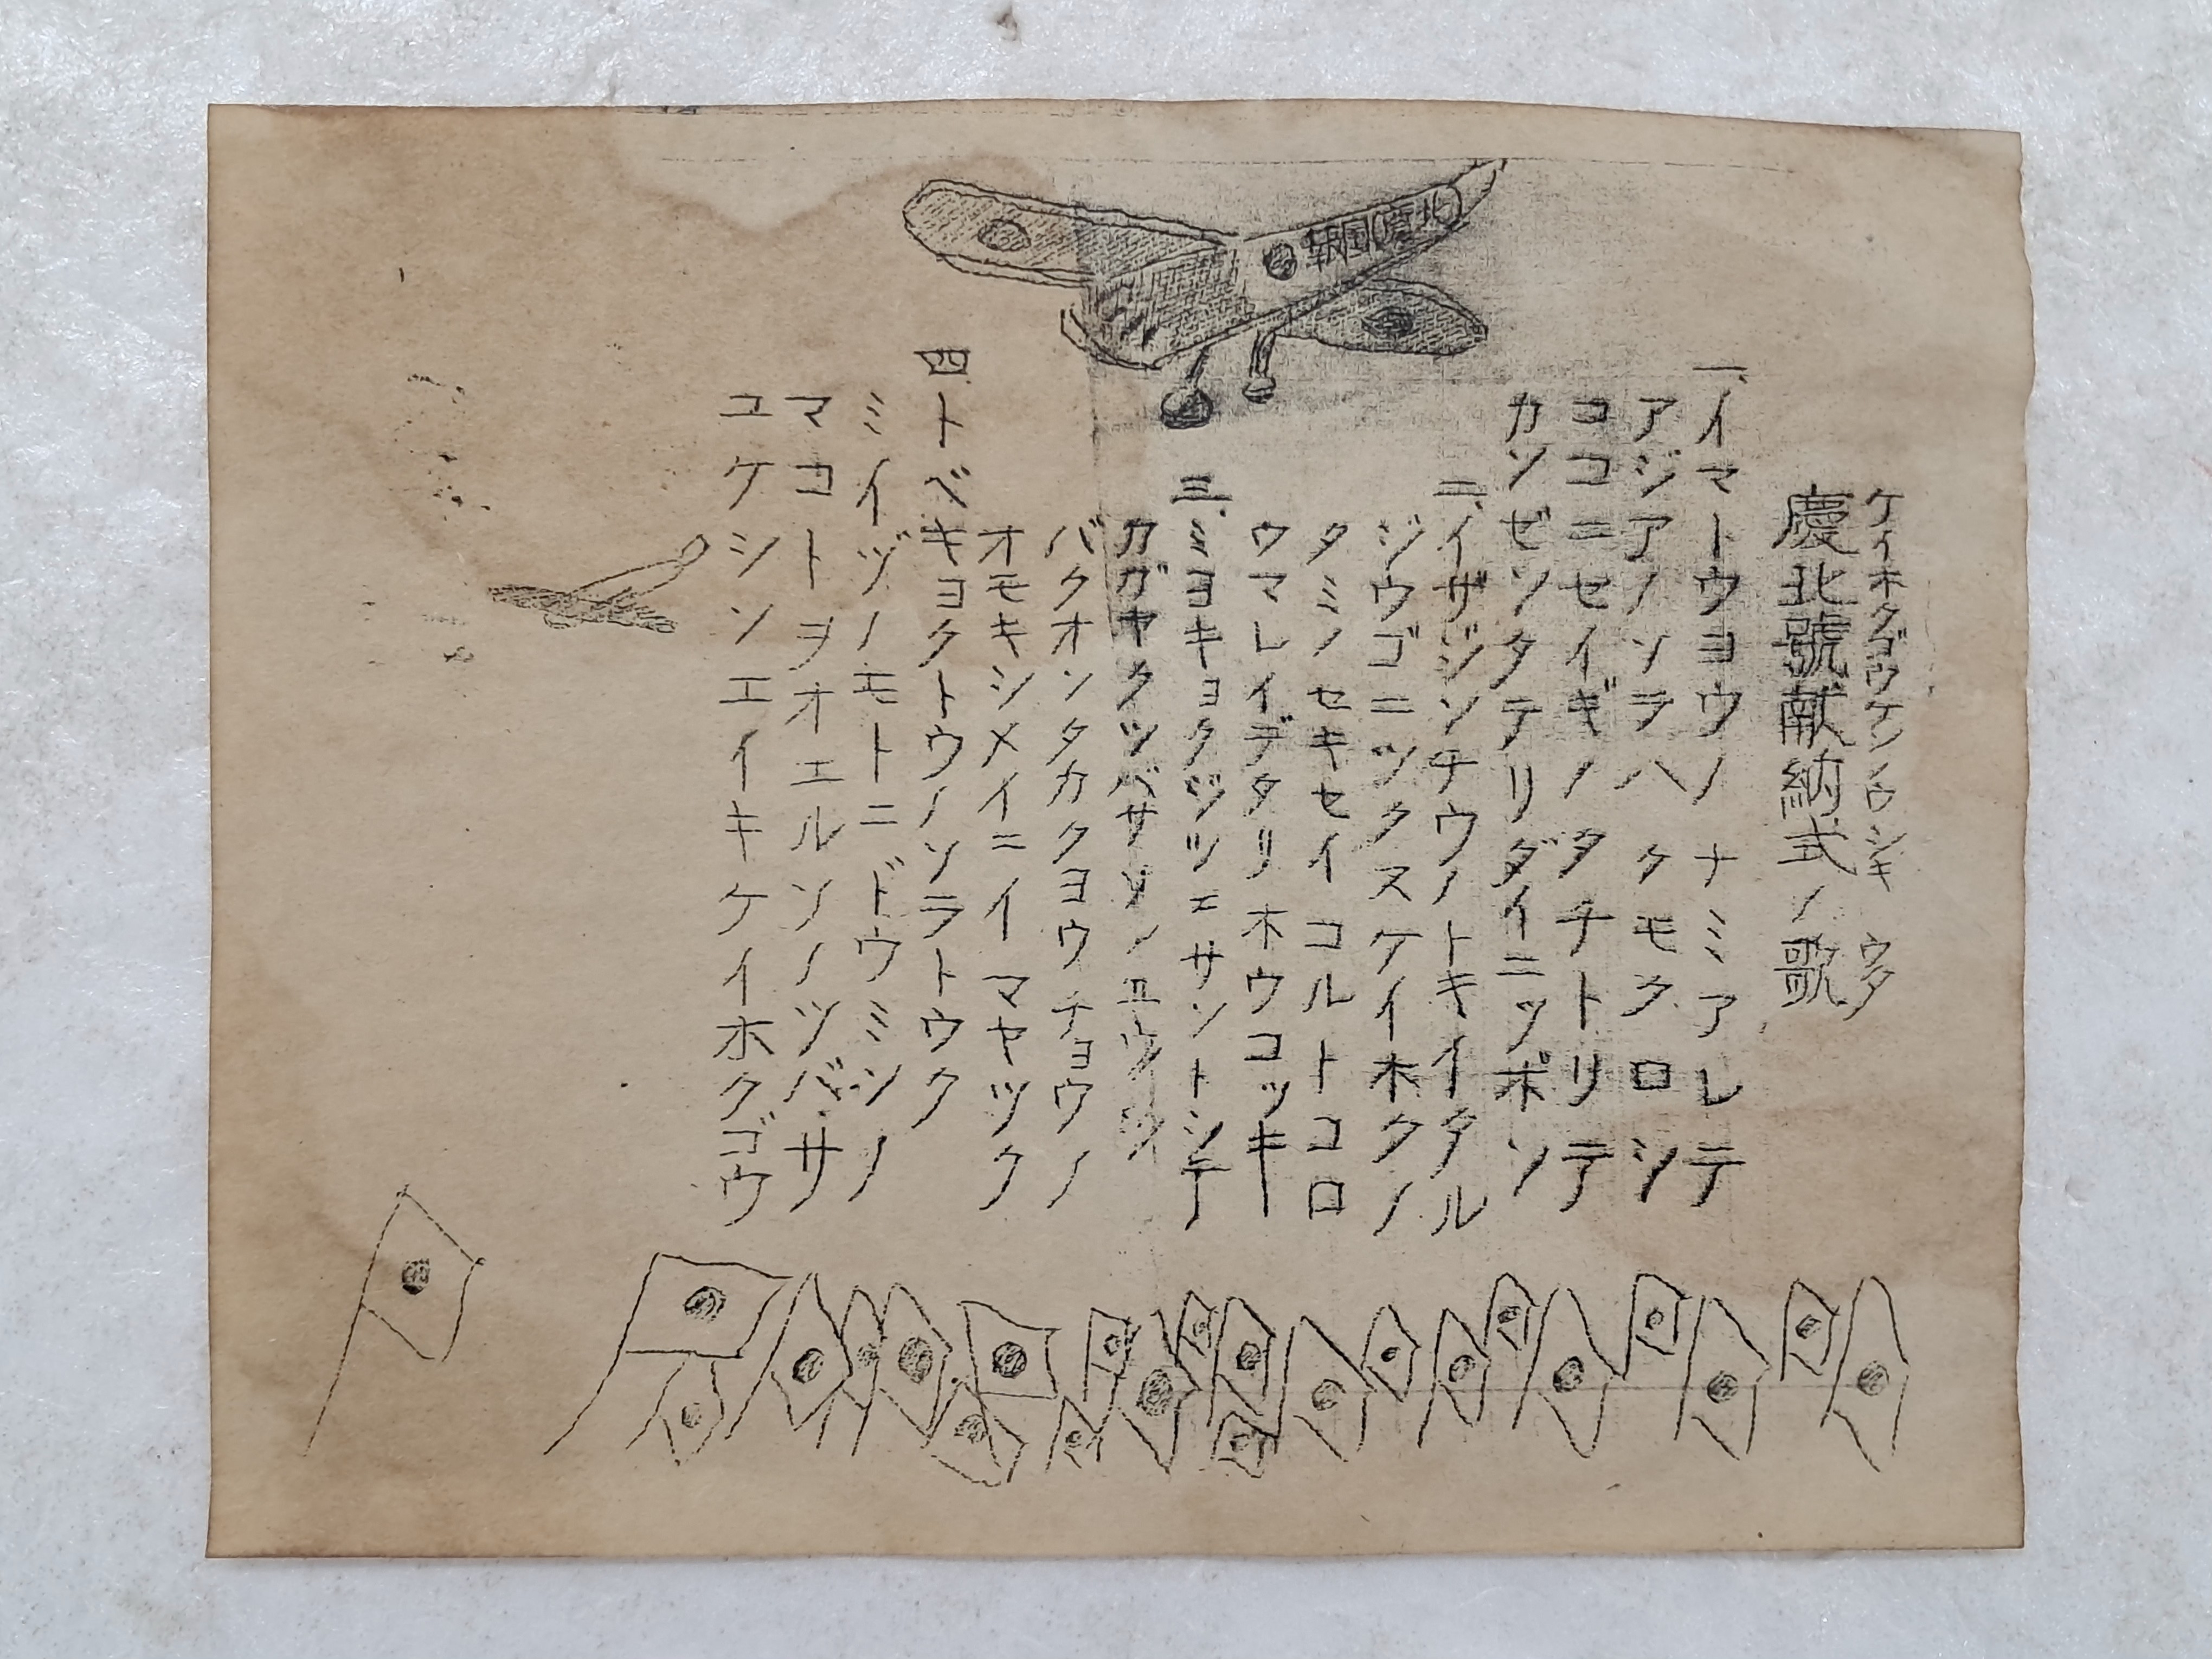 慶北號献納式ノ歌
ケイホクゴウケンノウシキ ウタ
一、イマトウヨウノナミアレテ
アジアノソラハクモクロシ
ココニセイギノタチトリテ
カンゼンタテリダイニッポン
二、イザジンチウノトキイタル
ジウゴニツクスケイホクノ
タミノセキセイコルトコロ
ウマレイデタリホウコッキ
三、ミヨキョクジツエサントシテ
カガヤクツバサソノユウシ
バクオンタカクヨウチョウノ
オモキシメイニイマヤツク
四、トベキヨクトウノソラトウク
ミイヅノモトニドウミンノ
マコトヲオエルソノツバサ
ユケシンエイキケイホクゴウ